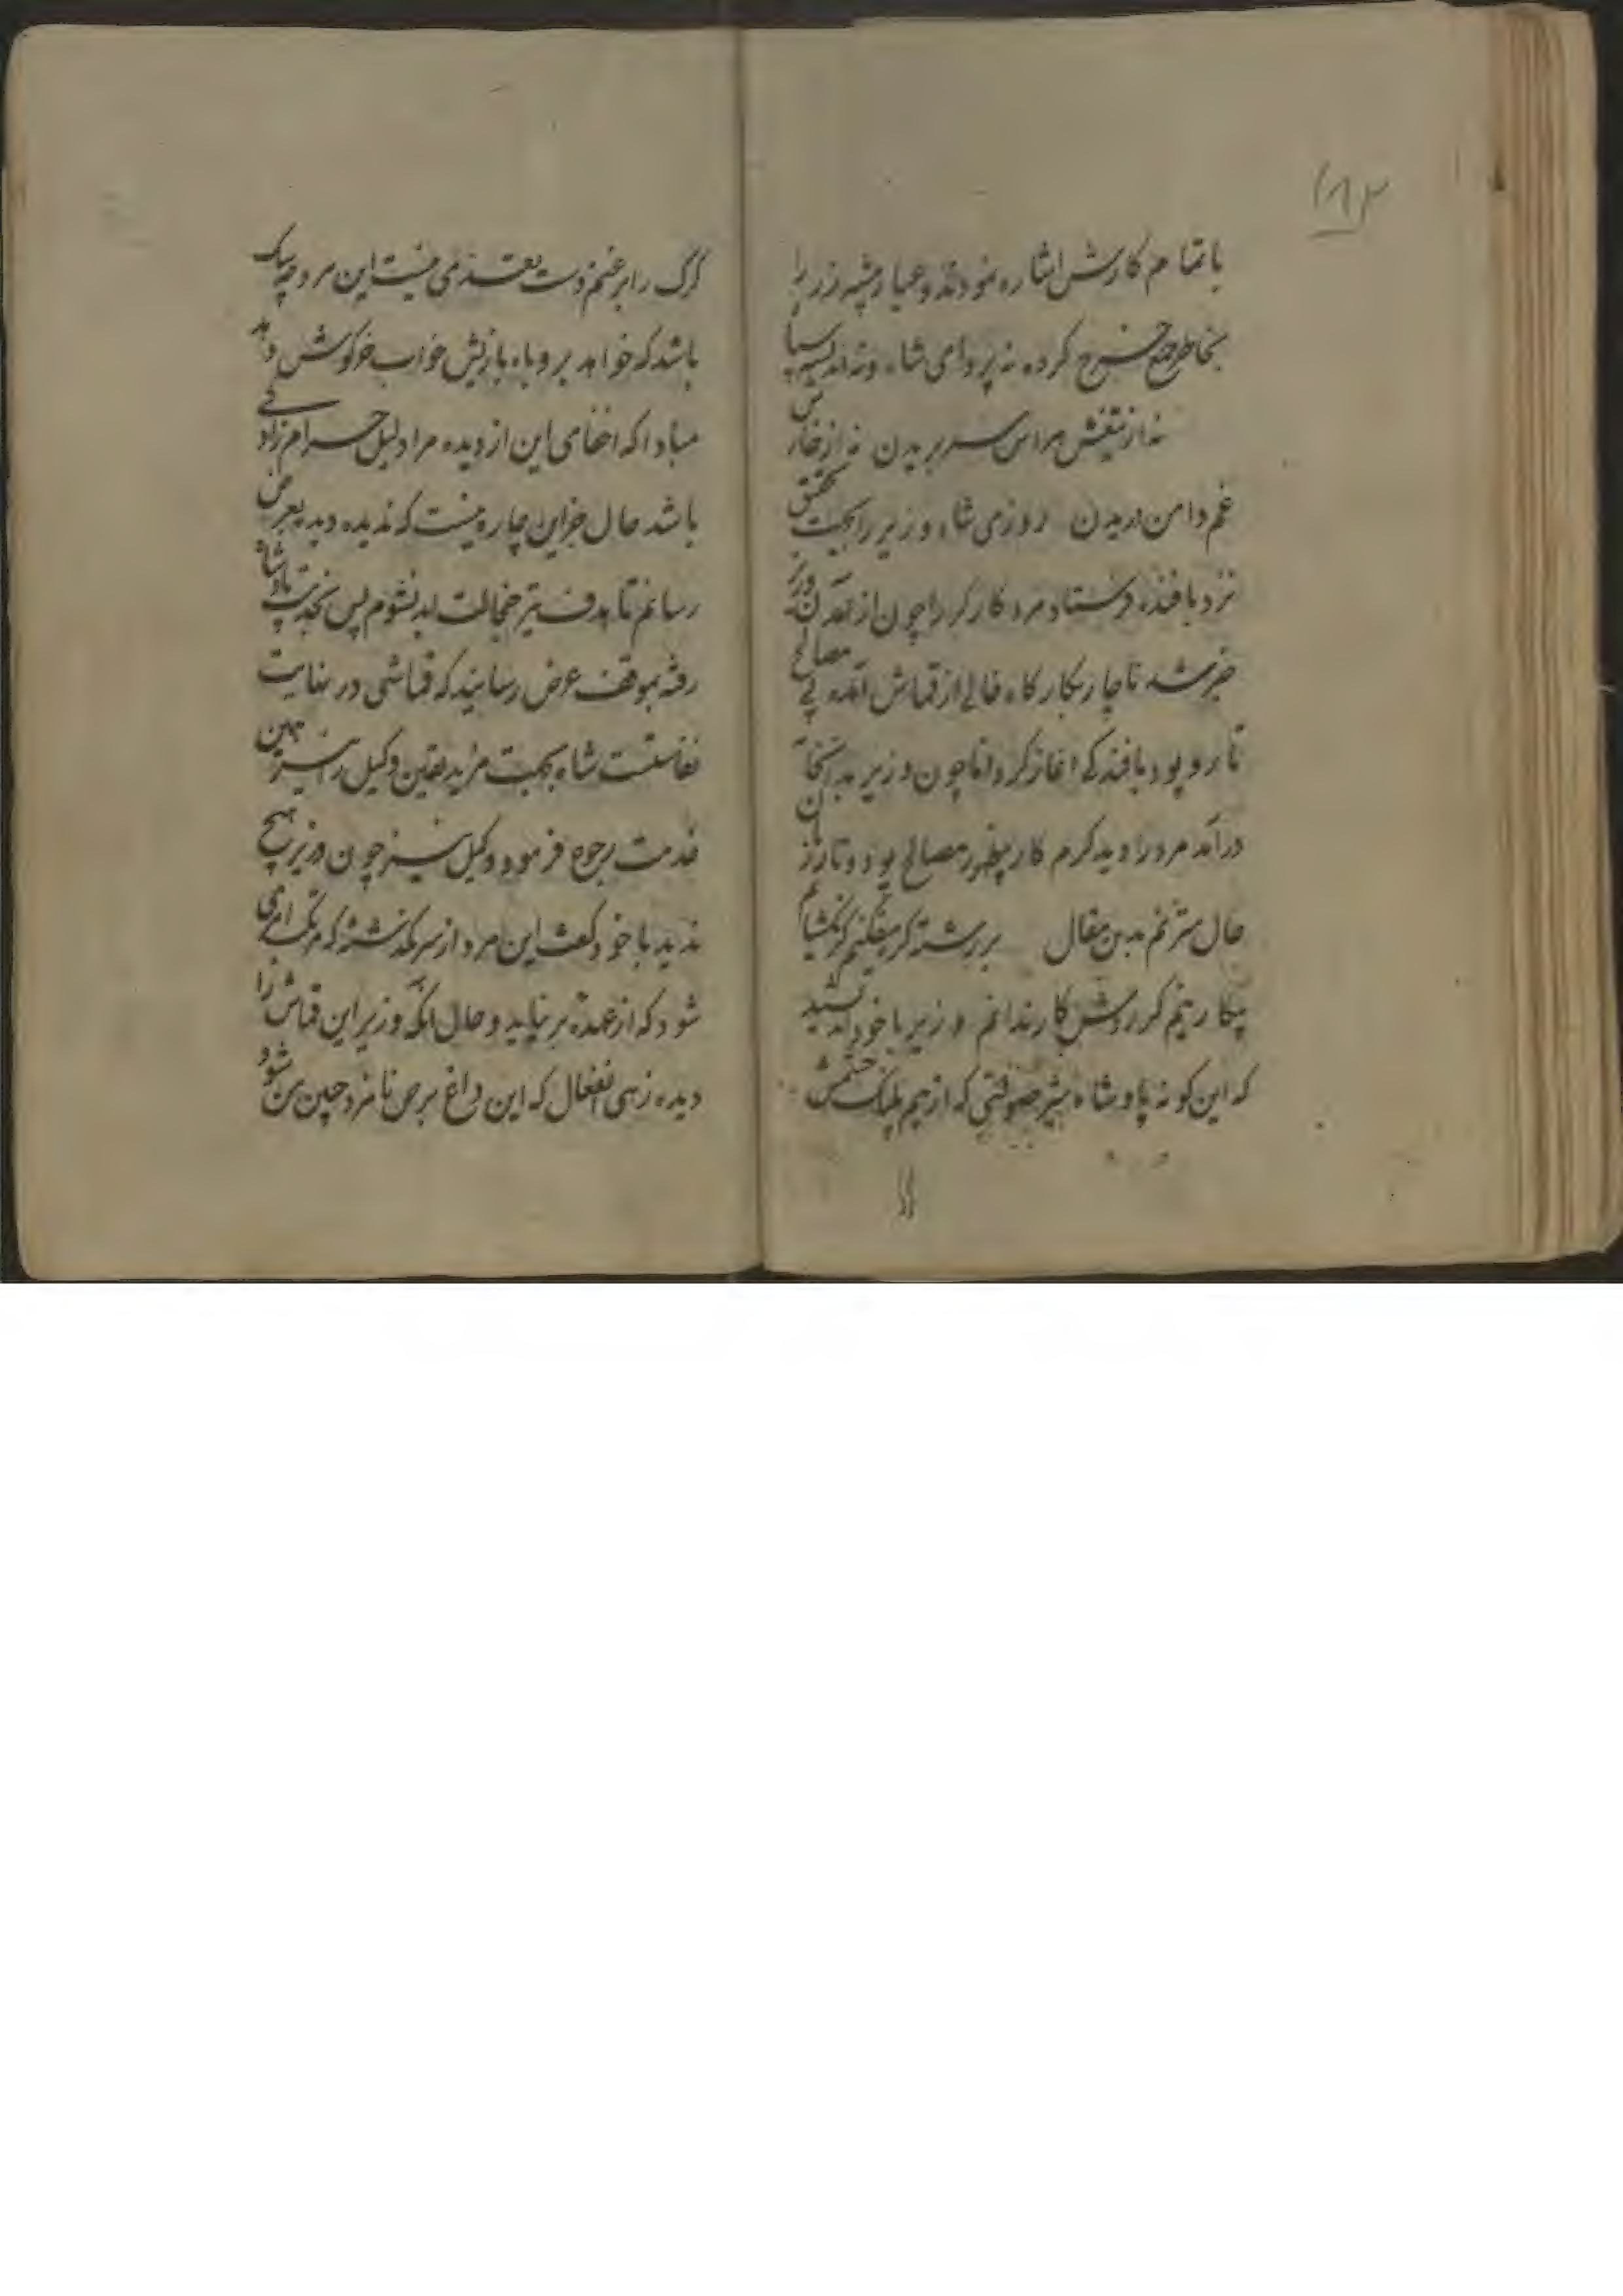 ۱۸۲
باتمام کارش اشاره نمودند و عیار پیشه زر را
بخاطر جمع خرج کرده نه پروای شاه و نه اندیشه سپاه
نه از تیغش هراس سر بریدن نه از خارش
غم دامن دریدن روزی شاه وزیر را بجهت تحقیق
نزد بافنده فرستاد مرد کارگر را چون از آمدن وزیر
خبر شد ناچار بکارگاه خالی از قماش آمده بی مصالح
تار و پود بافندگی آغاز کرد اما چون وزیر بدانجا
درآمد مرد را دید گرم کار بیظهور مصالح پود و تار زبان
حال مترنم بدین مقال بر رشته گر نیفکنم گر نگشایم
بیکار نیم گر روش کار ندانم وزیر با خود اندیشید
که این گونه پادشاه شیر صولتی که از بیم پلنگ خشمش
گرگ را بر غنم دست تعدی نیست این مرد چه سگ
باشد که خواهد بروباه بازیش خواب خرگوش دهد
مبادا که اخفای این از دیده مرا دلیل حرام زادگی
باشد حال جز این چاره نیست که ندیده دید بعرض
رسانم تا هدف تیر خجالت ابد نشوم پس بخدمت پادشاه
رفته بموقف عرض رسانید که قماشی در نهایت
نفاستست شاه بجهت مزید یقین وکیل را نیز بهمین
خدمت رجوع فرمود وکیل نیز چون وزیر هیچ
ندید با خود گفت این مرد از سر نگذشته که مرتکب امری
شود که از عهده بر نیاید و حال آنکه وزیر این قماش را
دیده زهی انفعال که این داغ بر من نامزد جبین من شود